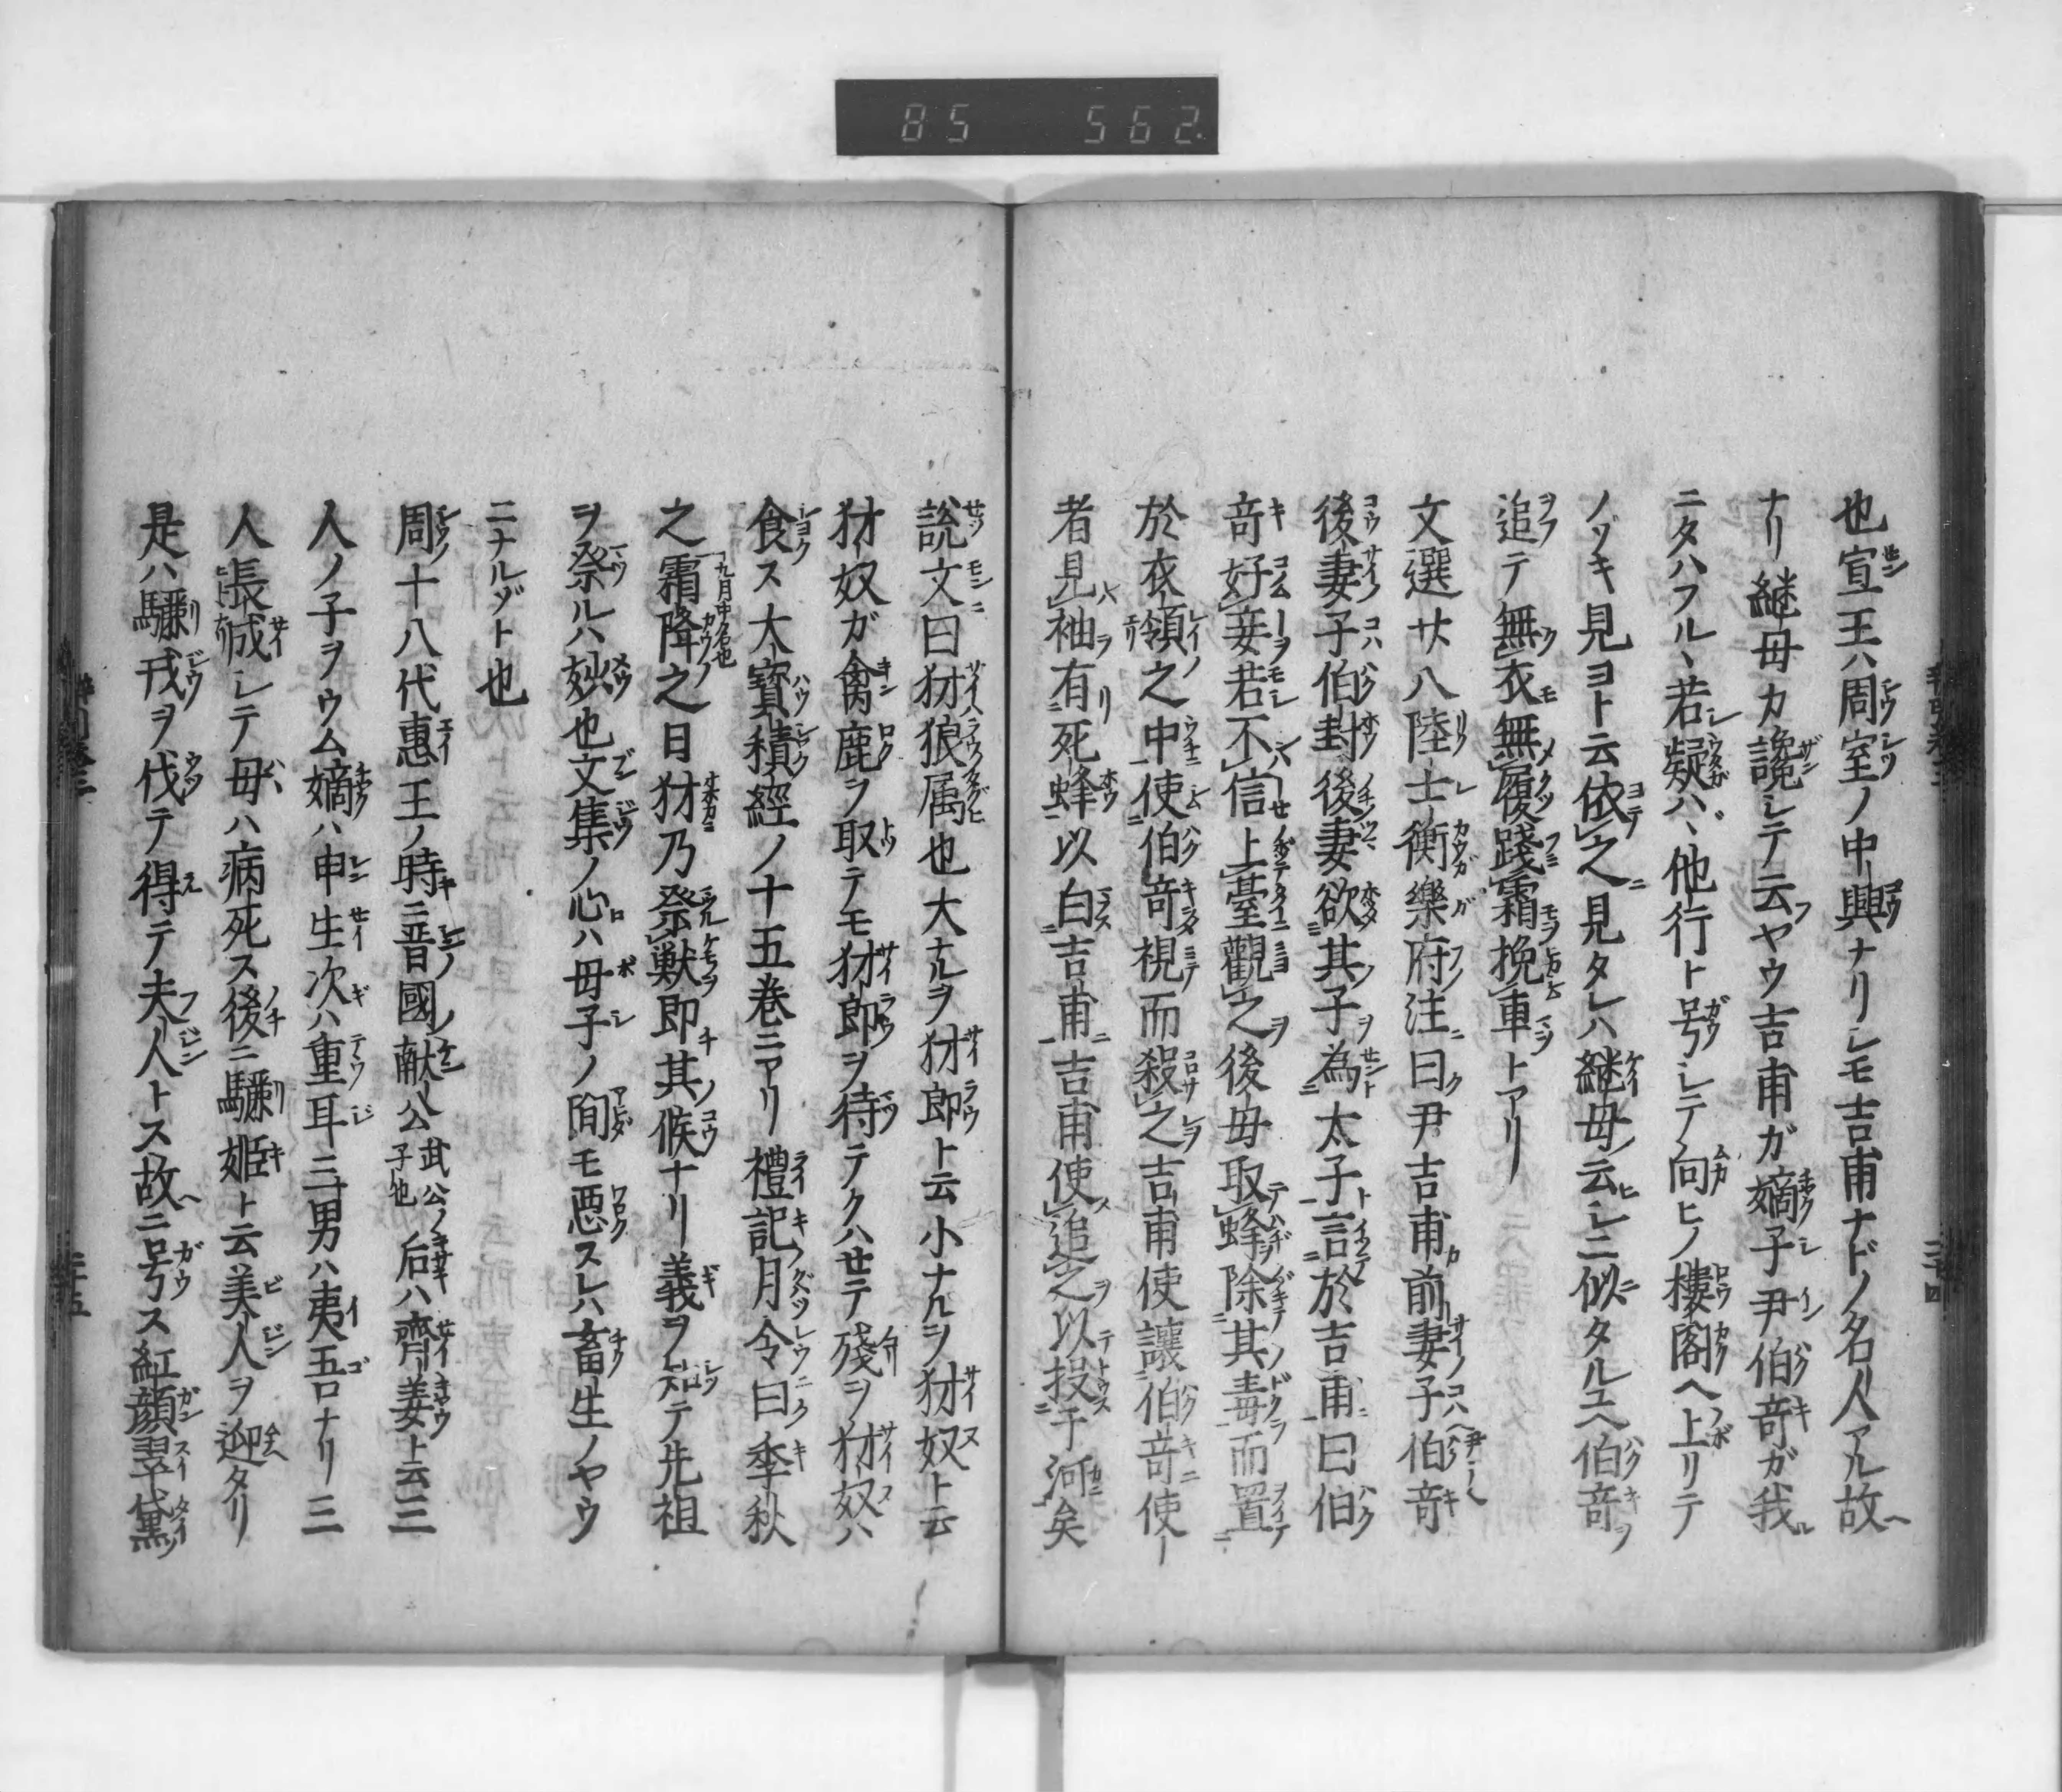 85 562.
也宣王ハ周室ノ中興ナリシモ吉甫ナドノ名人アル故
ナリ継母カ讒シテ云ヤウ吉甫ガ嫡子尹伯奇ガ我
ニタハフル、若疑ハ、他行ト号シテ向ヒノ樓閣ヘ上リテ
ノゾキ見ヨト云依之見タレハ継母ノ云シニ似タルユヘ伯奇
追テ無衣無履踐霜挽車トアリ
文選廿八陸士衡樂府注曰尹吉甫前妻子伯奇
後妻子伯封後妻欲其子為太子言於吉甫曰伯
奇好妾若不信上臺觀之後母取蜂除其毒而置
於衣領之中使伯奇視而殺之吉甫使讓伯奇使
者見袖有死蜂以白吉甫吉甫使追之以投于河矣
説文曰犲狼属也大ナルヲ犲郎ト云小ナルヲ犲奴ト云
犲奴ガ禽鹿ヲ取テモ犲郎ヲ待テクハせテ殘ヲ犲奴ハ
食ス大寳積經ノ十五巻ニアリ禮記月令曰季秋
之霜降之日犲乃祭獣即其候ナリ義ヲ知テ先祖
九月中ノ名也
ヲ祭ルハ妙也文集ノ心ハ母子ノ間モ悪スレハ畜生ノヤウ
ニナルゾト也
周十八代惠王ノ時ニ晋國ノ献公武公ノ子也后ハ齊姜ト云三
人ノ子ヲウム嫡ハ申生次ハ重耳三男ハ夷吾ナリ三
人長城シテ母ハ病死ス後ニ驪姫ト云美人ヲ迎タリ
是ハ驪戎ヲ伐テ得テ夫人トス故ニ号ス紅顔翠黛